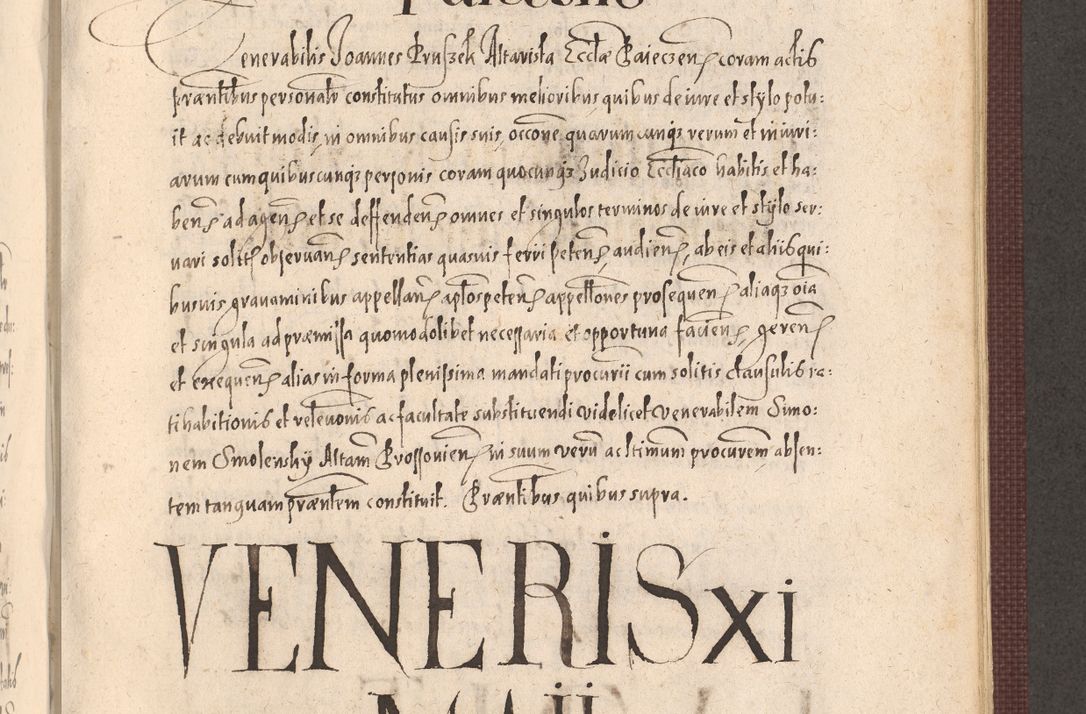 Venerabilis Joannes Pruszek Altarista Eccłae Raieczen coram actis
praentibus personałr constitutus omnibus melioribus quibus de iure et stylo potu:
it ac debuit modis, in omnibus causis suis, occone quarumcunq3 rerum et iniuri:
arum cum quibuscunq3 personis coram quocunq3 Judicio Eccłiaco habitis et ha:
ben̄ ad agen̄ et se deffenden̄ omnes et singulos terminos de iure et stylo ser:
vari solit observan̄ sententias quasvis ferri peten̄, audien̄, ab eis et aliis qui:
busvis gravaminibus appellan̄ apłos peten̄ appełłones prosequen̄ aliaq3 oīa
et singula ad praemissa quomodolibet necessaria et opportuna facien̄, geren̄
et exequen̄ alias in forma plenissima mandati procurii cum solitis clausulis ra:
tihabitionis et relevonis ac facultate substituendi videlicet venerabilem Simo:
nem Smolensky Altam̄ Prossovien̄ in suum verū ac ltimum procurem absen:
tem tanquam praentem constituit. Praentibus quibus supra.
VENERIS xi
MAII